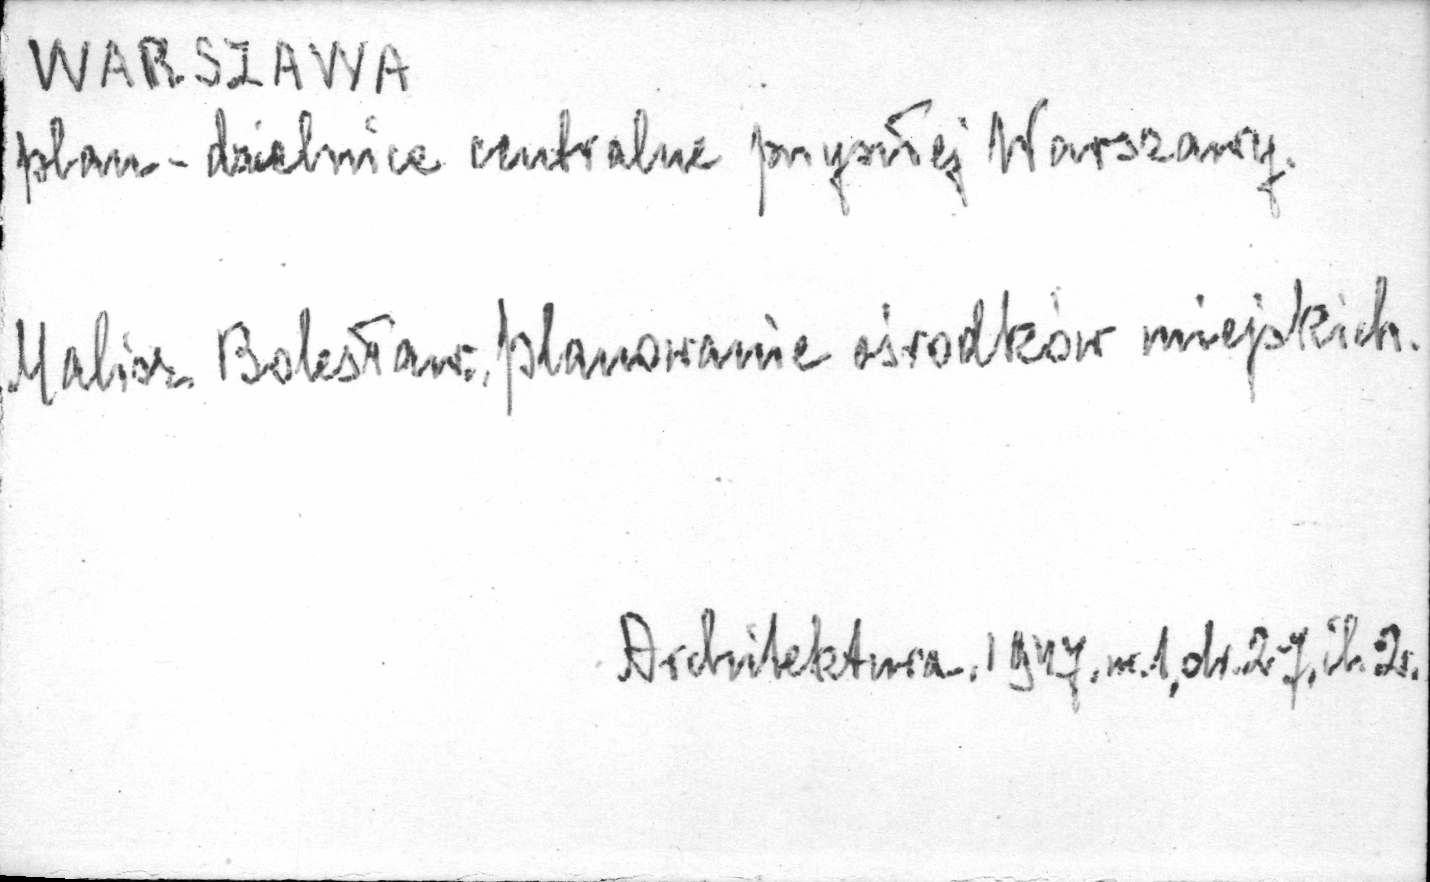 WARSZAWA
plan - dzielnice centralne przyszłej Warszawy.
Malisz Bolesław., planowanie ośrodków miejskich.
Architektura. 1947. nr. 1, str. 27, il. 2.